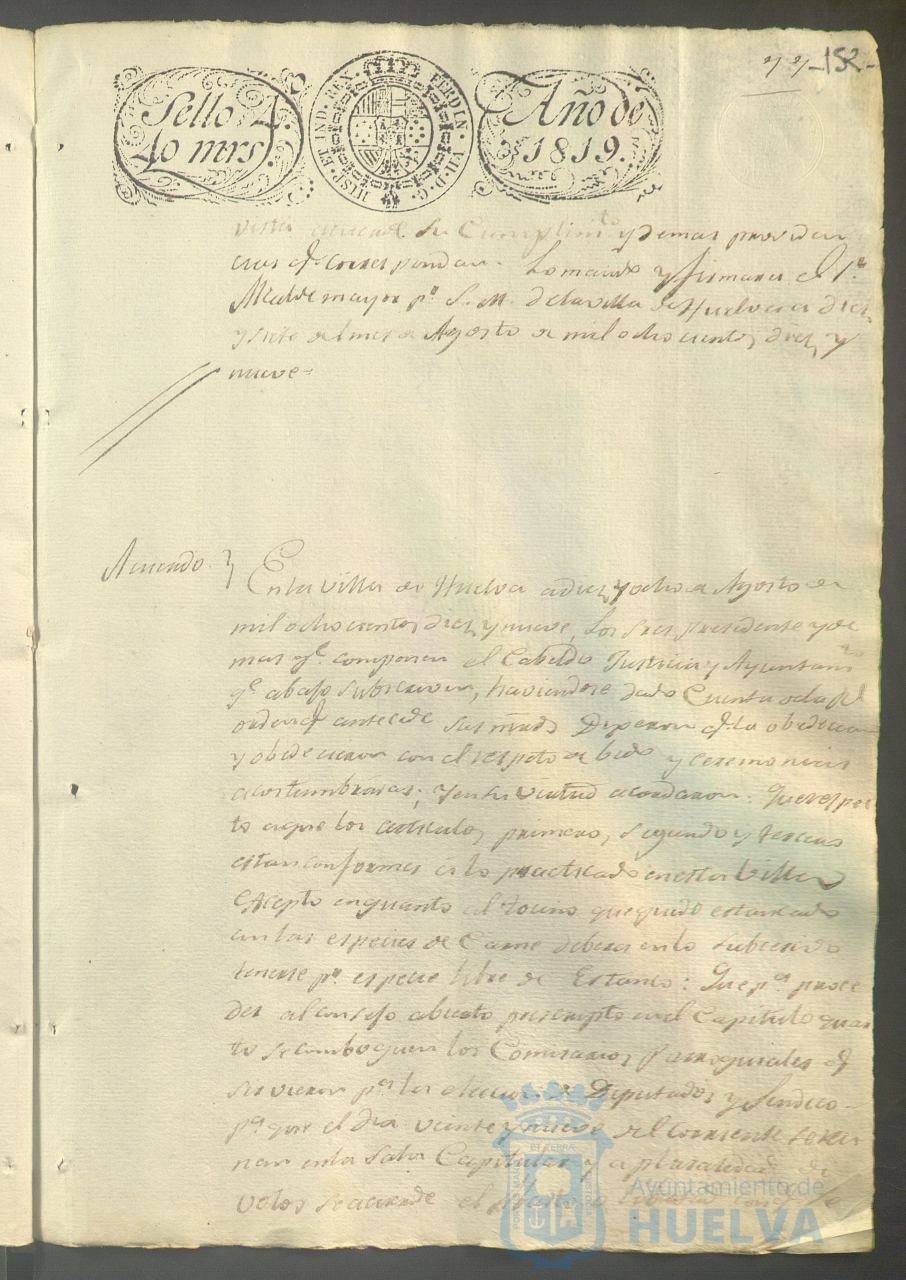 152
Sello 4.
40 mrs.
HISP. ET IND. REX. FERDIN. VII. D. G.
Año de
1819.
vista su Cumplim.to y demas providen
cias q.e correspondan. Lo mando y firmara el S.r
Alcalde mayor p.r S. M. de la villa de Huelva a diez
y siete del mes de Agosto de mil ochocientos diez y
nueve=
Acuerdo.
En la Villa de Huelva a diez y ocho de Agosto de
mil ochocientos diez y nueve, los Sres presidente y de
mas q.e componen el Cabildo Justicia y Ayuntam.to
q.e abajo subscriven, haviendose dado Cuenta de la R.l
orden q.e antecede sus mrds Dijeron q.e la obedecian
y obedecieron con el respeto debido y ceremonias
acostumbradas; y en su virtud acordaron: Que respec
to a que los articulos, primero, segundo y tercero
estan conformes a lo practicado en esta Villa
excepto en quanto al tocino que quedo estancado
en las especies de Carne debera en lo subcesivo
tenerse p.r especie libre de Estanco: Que p.a proce
der al consejo abierto prescripto en el Capitulo quar
to se comboquen los Comisarios Parroquiales q.e
sirvieron p.a la eleccion de Diputados y Sindico
p.a que el dia veinte y nueve del corriente se reu
nan en la Sala Capitular y a pluralidad de
votos se acuerde el
Ayuntamiento de
HUELVA